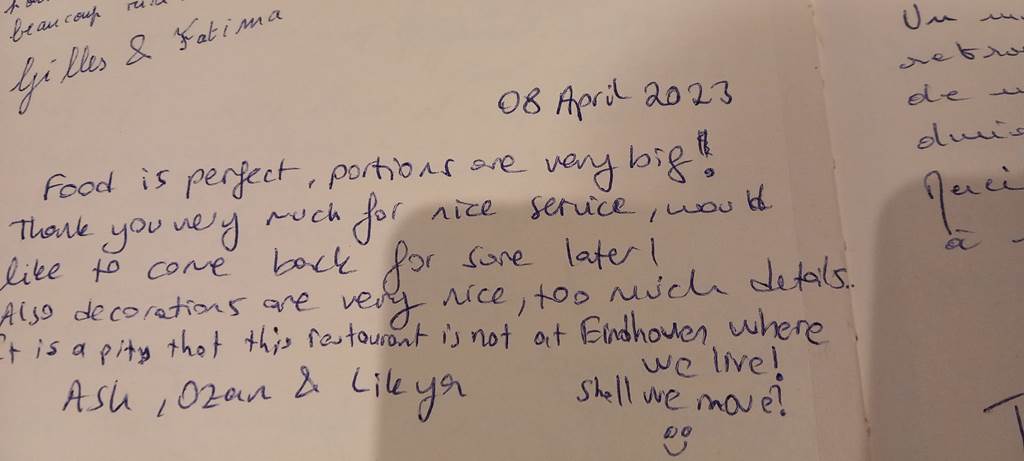 beaucoup
Gilles & Fatima
08 April 2023
Food is perfect, portions are very big!
Thank you very much for nice service, would
like to come back for sure later!
Also decorations are very nice, too much details.
It is a pity that this restaurant is not at Eindhoven where
we live!
Shell we move?
Aslı, Ozan & Likya
Un
de
Merci
à